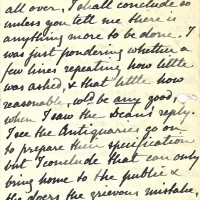 all over, I shall conclude so
unless you tell me there is
anything more to be done. I
was just pondering whether a
few lines repeating how little
was asked, & that little how
reasonable, wd. be any good,
when I saw the Dean's reply.
I see the Antiquaries go on
to prepare their specification
but I conclude that can only
bring home to the public &
the doers the grievous mistake,